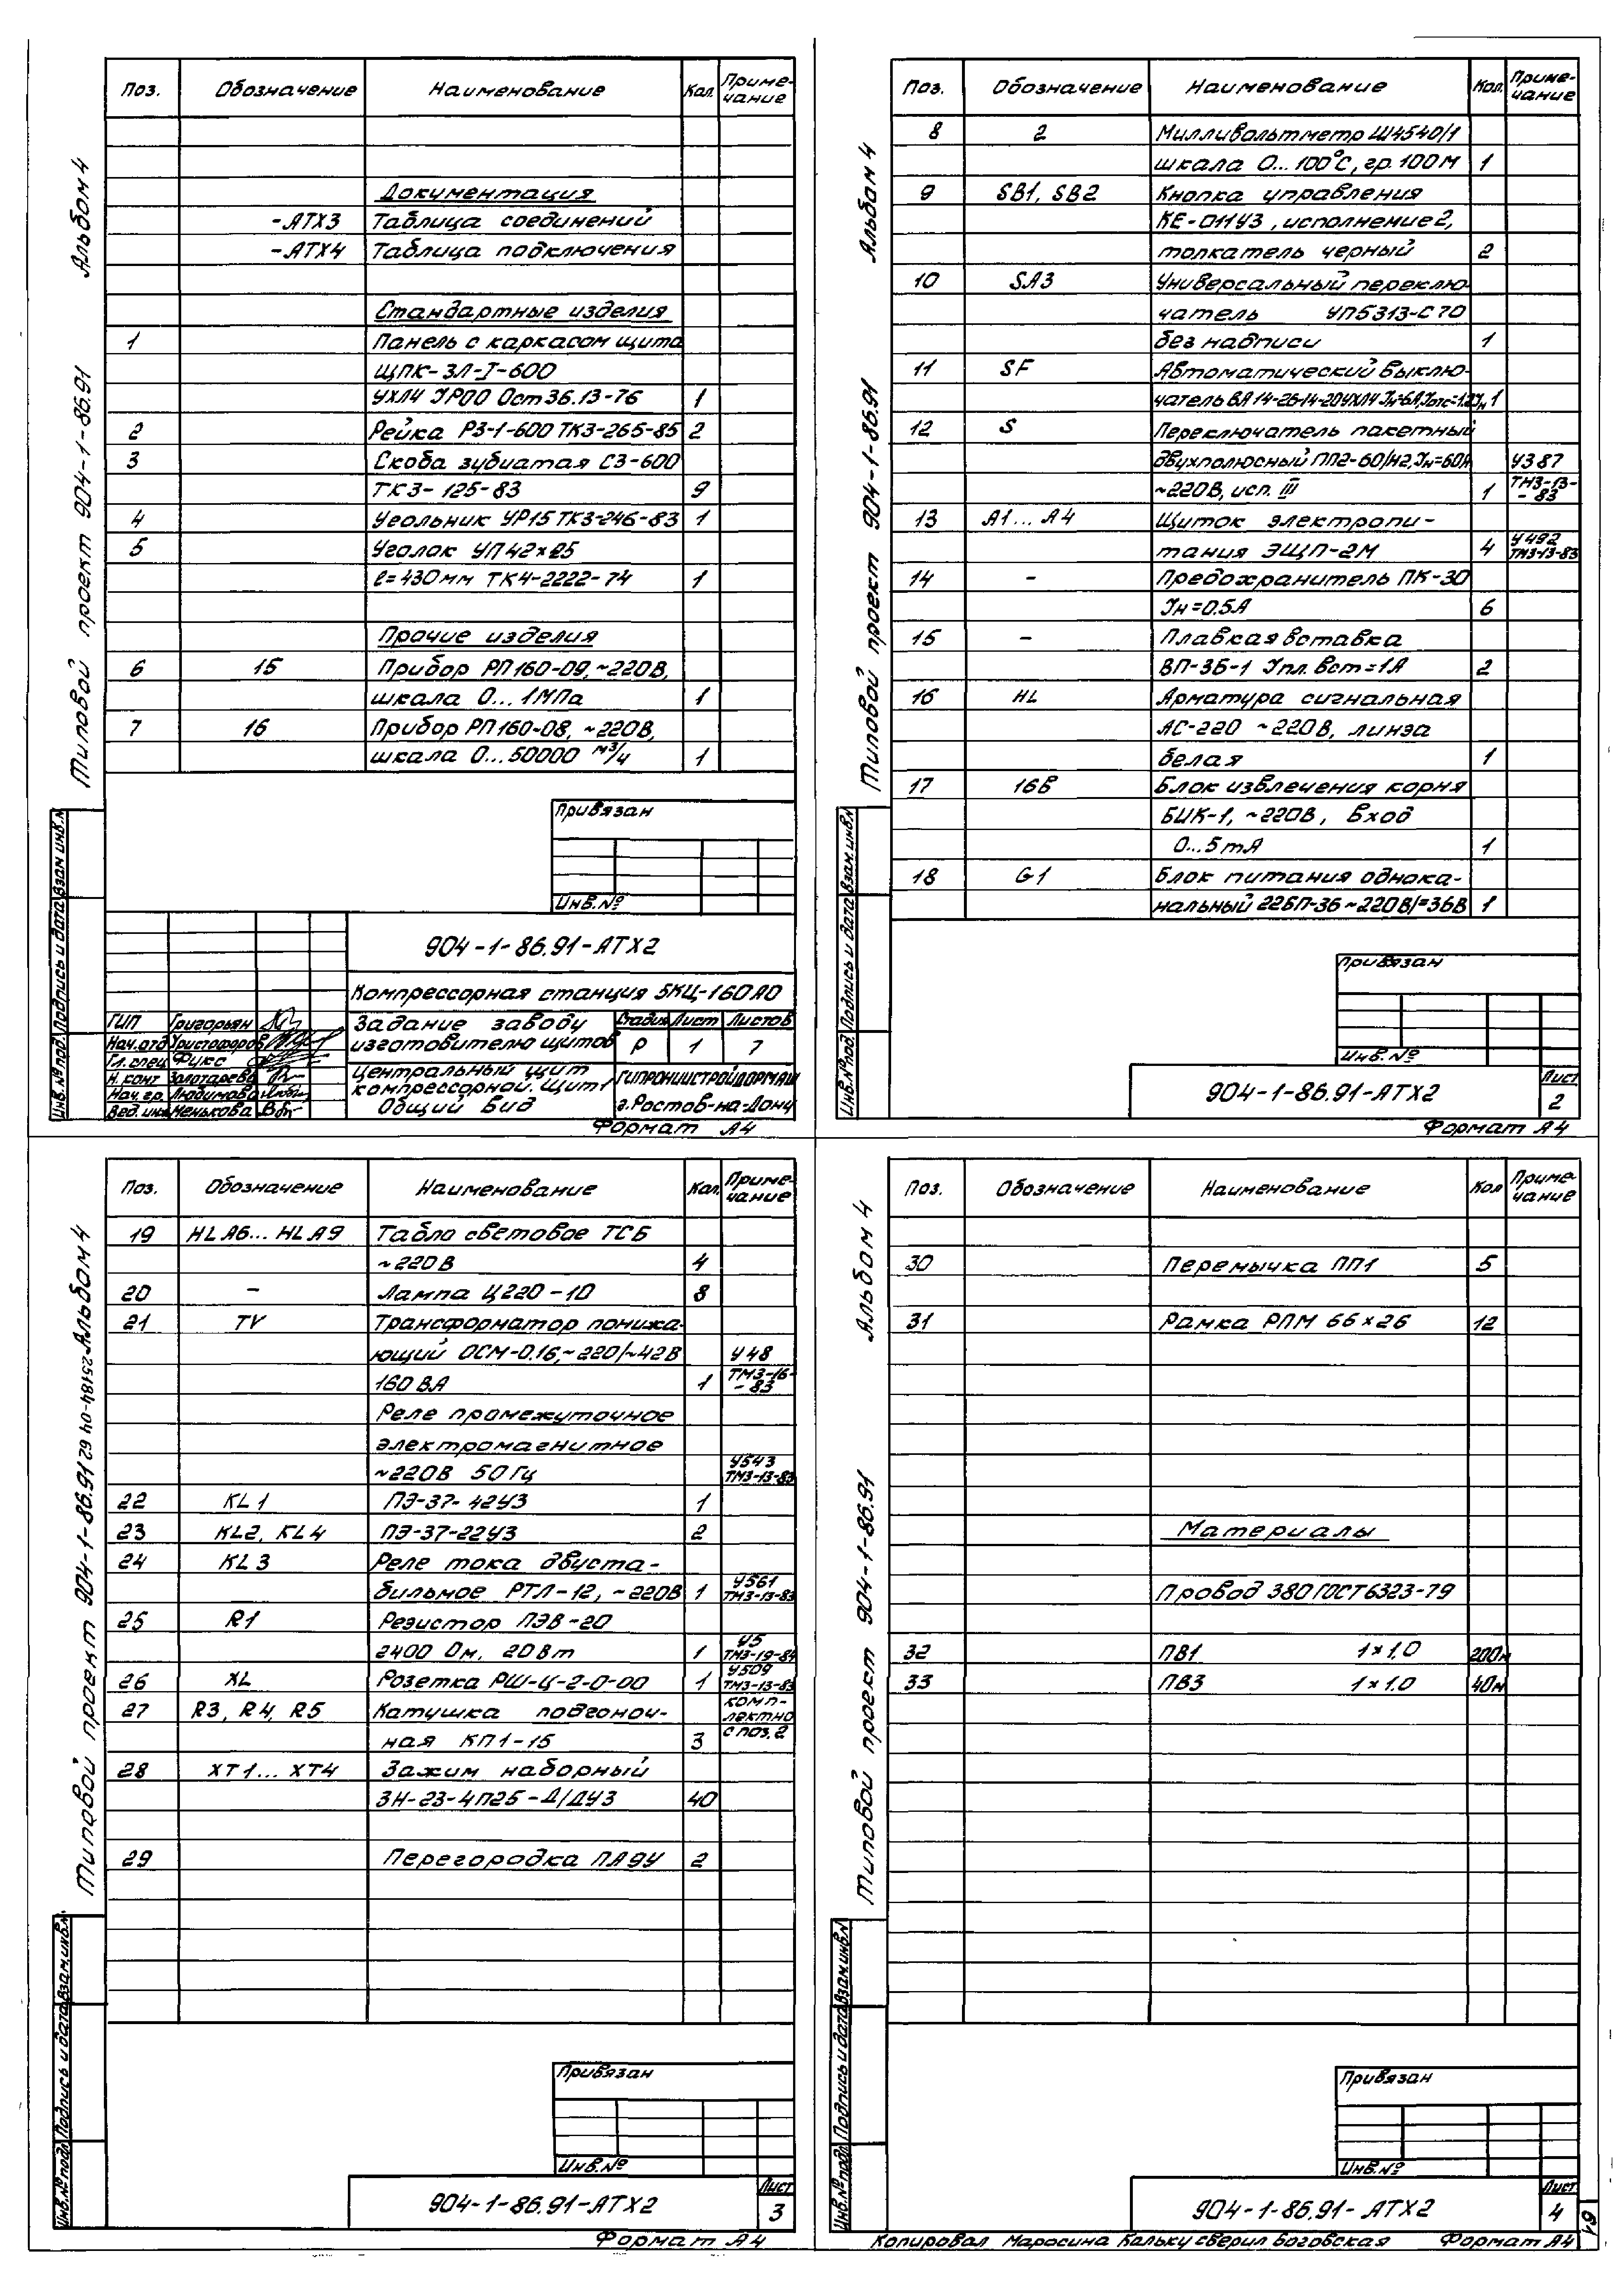 Альбом 4
Типовой проект 904-1-86.91
Поз. Обозначение Наименование Кол. Приме-
чание
Документация
-АТХ3 Таблица соединений
-АТХ4 Таблица подключения
Стандартные изделия
1 Панель с каркасом щита
ЩПК-3Л-I-600
УХЛ4 IP00 Ост 36.13-76 1
2 Рейка Р3-1-600 ТК3-265-85 2
3 Скоба зубчатая С3-600
ТК3-125-83 9
4 Угольник УР15 ТК3-246-83 1
5 Уголок УП 42×25
ℓ=430мм ТК4-2222-74 1
Прочие изделия
6 15 Прибор РП160-09, ~220В,
шкала 0...1МПа 1
7 16 Прибор РП160-08, ~220В,
шкала 0...50000 м³/ч 1
Привязан
Инв.№
904-1-86.91-АТХ2
Компрессорная станция 5КЦ-160А0
ГИП Григорьян
Нач.отд Христофоров
Гл.спец Фукс
Н.конт Золотарева
Нач.гр. Любимова
Вед.инж Менькова
Задание заводу
изготовителю щитов
Стадия Лист Листов
Р 1 7
Центральный щит
компрессорной. Щит 1
Общий вид
ГИПРОНИИСТРОЙДОРМАШ
г.Ростов-на-Дону
Инв.№под. Подпись и дата Взам.инв.№
Формат А4
Альбом 4
Типовой проект 904-1-86.91
Поз. Обозначение Наименование Кол. Приме-
чание
8 2 Милливольтметр Ш4540/1
шкала 0...100°С, гр. 100М 1
9 SB1, SB2 Кнопка управления
КЕ-011У3, исполнение 2,
толкатель черный 2
10 SA3 Универсальный переклю-
чатель УП5313-С70
без надписи 1
11 SF Автоматический выклю-
чатель ВА14-26-14-20УХЛ4 Iн=6А, Iотс=1.2Iн 1
12 S Переключатель пакетный
двухполюсный ПП2-60/Н2, Iн=60А У387
~220В, исп. III 1 ТМ3-13-
-83
13 А1...А4 Щиток электропи-
тания ЭЩП-2М 4 У492
ТМ3-13-83
14 - Предохранитель ПК-30
Iн=0.5А 6
15 - Плавкая вставка
ВП-3Б-1 Iпл.вст=1А 2
16 HL Арматура сигнальная
АС-220 ~220В, линза
белая 1
17 16В Блок извлечения корня
БИК-1, ~220В, вход
0...5 mA 1
18 G1 Блок питания однока-
нальный 22БП-36 ~220В/=36В 1
Привязан
Инв.№
904-1-86.91-АТХ2
Лист
2
Инв.№под. Подпись и дата Взам.инв.№
Формат А4
Альбом 4
Типовой проект 904-1-86.91
25184-04 62
Поз. Обозначение Наименование Кол. Приме-
чание
19 HLA6...HLA9 Табло световое ТСБ
~220В 4
20 - Лампа Ц220-10 8
21 TV Трансформатор понижа-
ющий ОСМ-0.16, ~220/~42В У48
160 ВА 1 ТМ3-16-
-83
Реле промежуточное
электромагнитное
~220В 50Гц У543
ТМ3-13-83
22 KL1 ПЭ-37-42У3 1
23 KL2, KL4 ПЭ-37-22У3 2
24 KL3 Реле тока двуста-
бильное РТЛ-12, ~220В 1 У561
ТМ3-13-83
25 R1 Резистор ПЭВ-20
2400 Ом, 20Вт 1 У5
ТМ3-19-84
26 XL Розетка РШ-Ц-2-0-00 1 У509
ТМ3-13-83
27 R3, R4, R5 Катушка подгоноч-
ная КП1-15 3
комп-
лектно
с поз.2
28 XT1...XT4 Зажим наборный
ЗН-23-4П25-Д/ДУ3 40
29 Перегородка ПА9У 2
Привязан
Инв.№
904-1-86.91-АТХ2
Лист
3
Инв.№подл Подпись и дата Взам.инв.№
Формат А4
Альбом 4
Типовой проект 904-1-86.91
Поз. Обозначение Наименование Кол Приме-
чание
30 Перемычка ПП1 5
31 Рамка РПМ 66×26 12
Материалы
Провод 380 ГОСТ 6323-79
32 ПВ1 1×1,0 200м
33 ПВ3 1×1.0 40м
Привязан
Инв.№
904-1-86.91-АТХ2
Лист
4
61
Инв.№подл Подпись и дата Взам.инв.№
Копировал Маросина Кальку сверил Боговская Формат А4